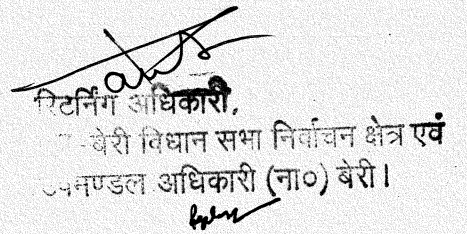 रिटर्निंग अधिकारी,
-बेरी विधान सभा निर्वाचन क्षेत्र एवं
उपमण्डल अधिकारी (ना०) बेरी।